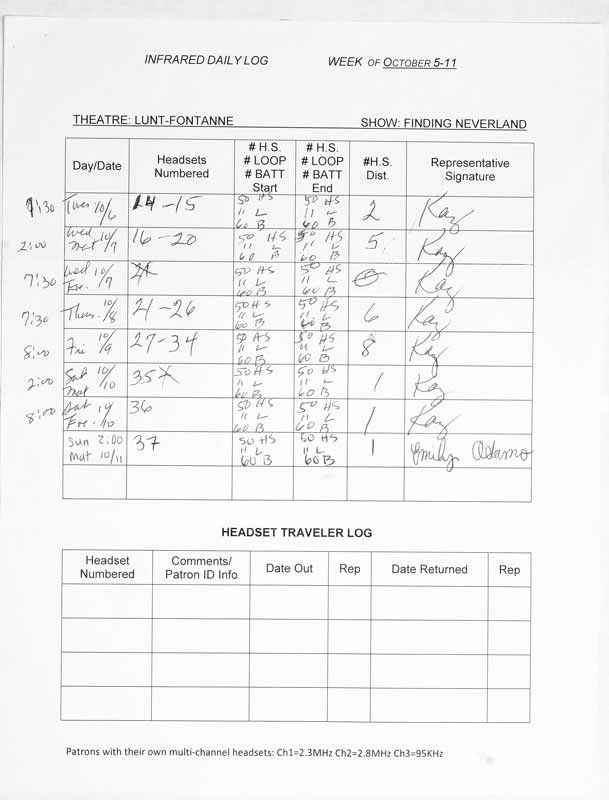 INFRARED DAILY LOG WEEK OF OCTOBER 5-11
THEATRE: LUNT-FONTANNE SHOW: FINDING NEVERLAND
Day/Date Headsets Numbered # H.S. # LOOP # BATT Start # H.S. # LOOP # BATT End #H.S. Dist. Representative Signature
7:30 Tues 10/6 14-15 50 HS 11 L 60 B 50 HS 11 L 60 B 2 Kay
2:00 Wed Mat 10/7 16-20 50 HS 11 L 60 B 50 HS 11 L 60 B 5 Kay
7:30 Wed Eve. 10/7 50 HS 11 L 60 B 50 HS 11 L 60 B 0 Kay
7:30 Thus. 10/8 21-26 50 HS 11 L 60 B 50 HS 11 L 60 B 6 Kay
8:00 Fri 10/9 27-34 50 HS 11 L 60 B 50 HS 11 L 60 B 8 Kay
2:00 Sat Mat 10/10 35 50 HS 11 L 60 B 50 HS 11 L 60 B 1 Kay
8:00 Sat Eve. 10/10 36 50 HS 11 L 60 B 50 HS 11 L 60 B 1 Kay
Sun 2:00 Mat 10/11 37 50 HS 11 L 60 B 50 HS 11 L 60 B 1 Emily Adamo
HEADSET TRAVELER LOG
Headset Numbered Comments/ Patron ID Info Date Out Rep Date Returned Rep
Patrons with their own multi-channel headsets: Ch1=2.3MHz Ch2=2.8MHz Ch3=95KHz